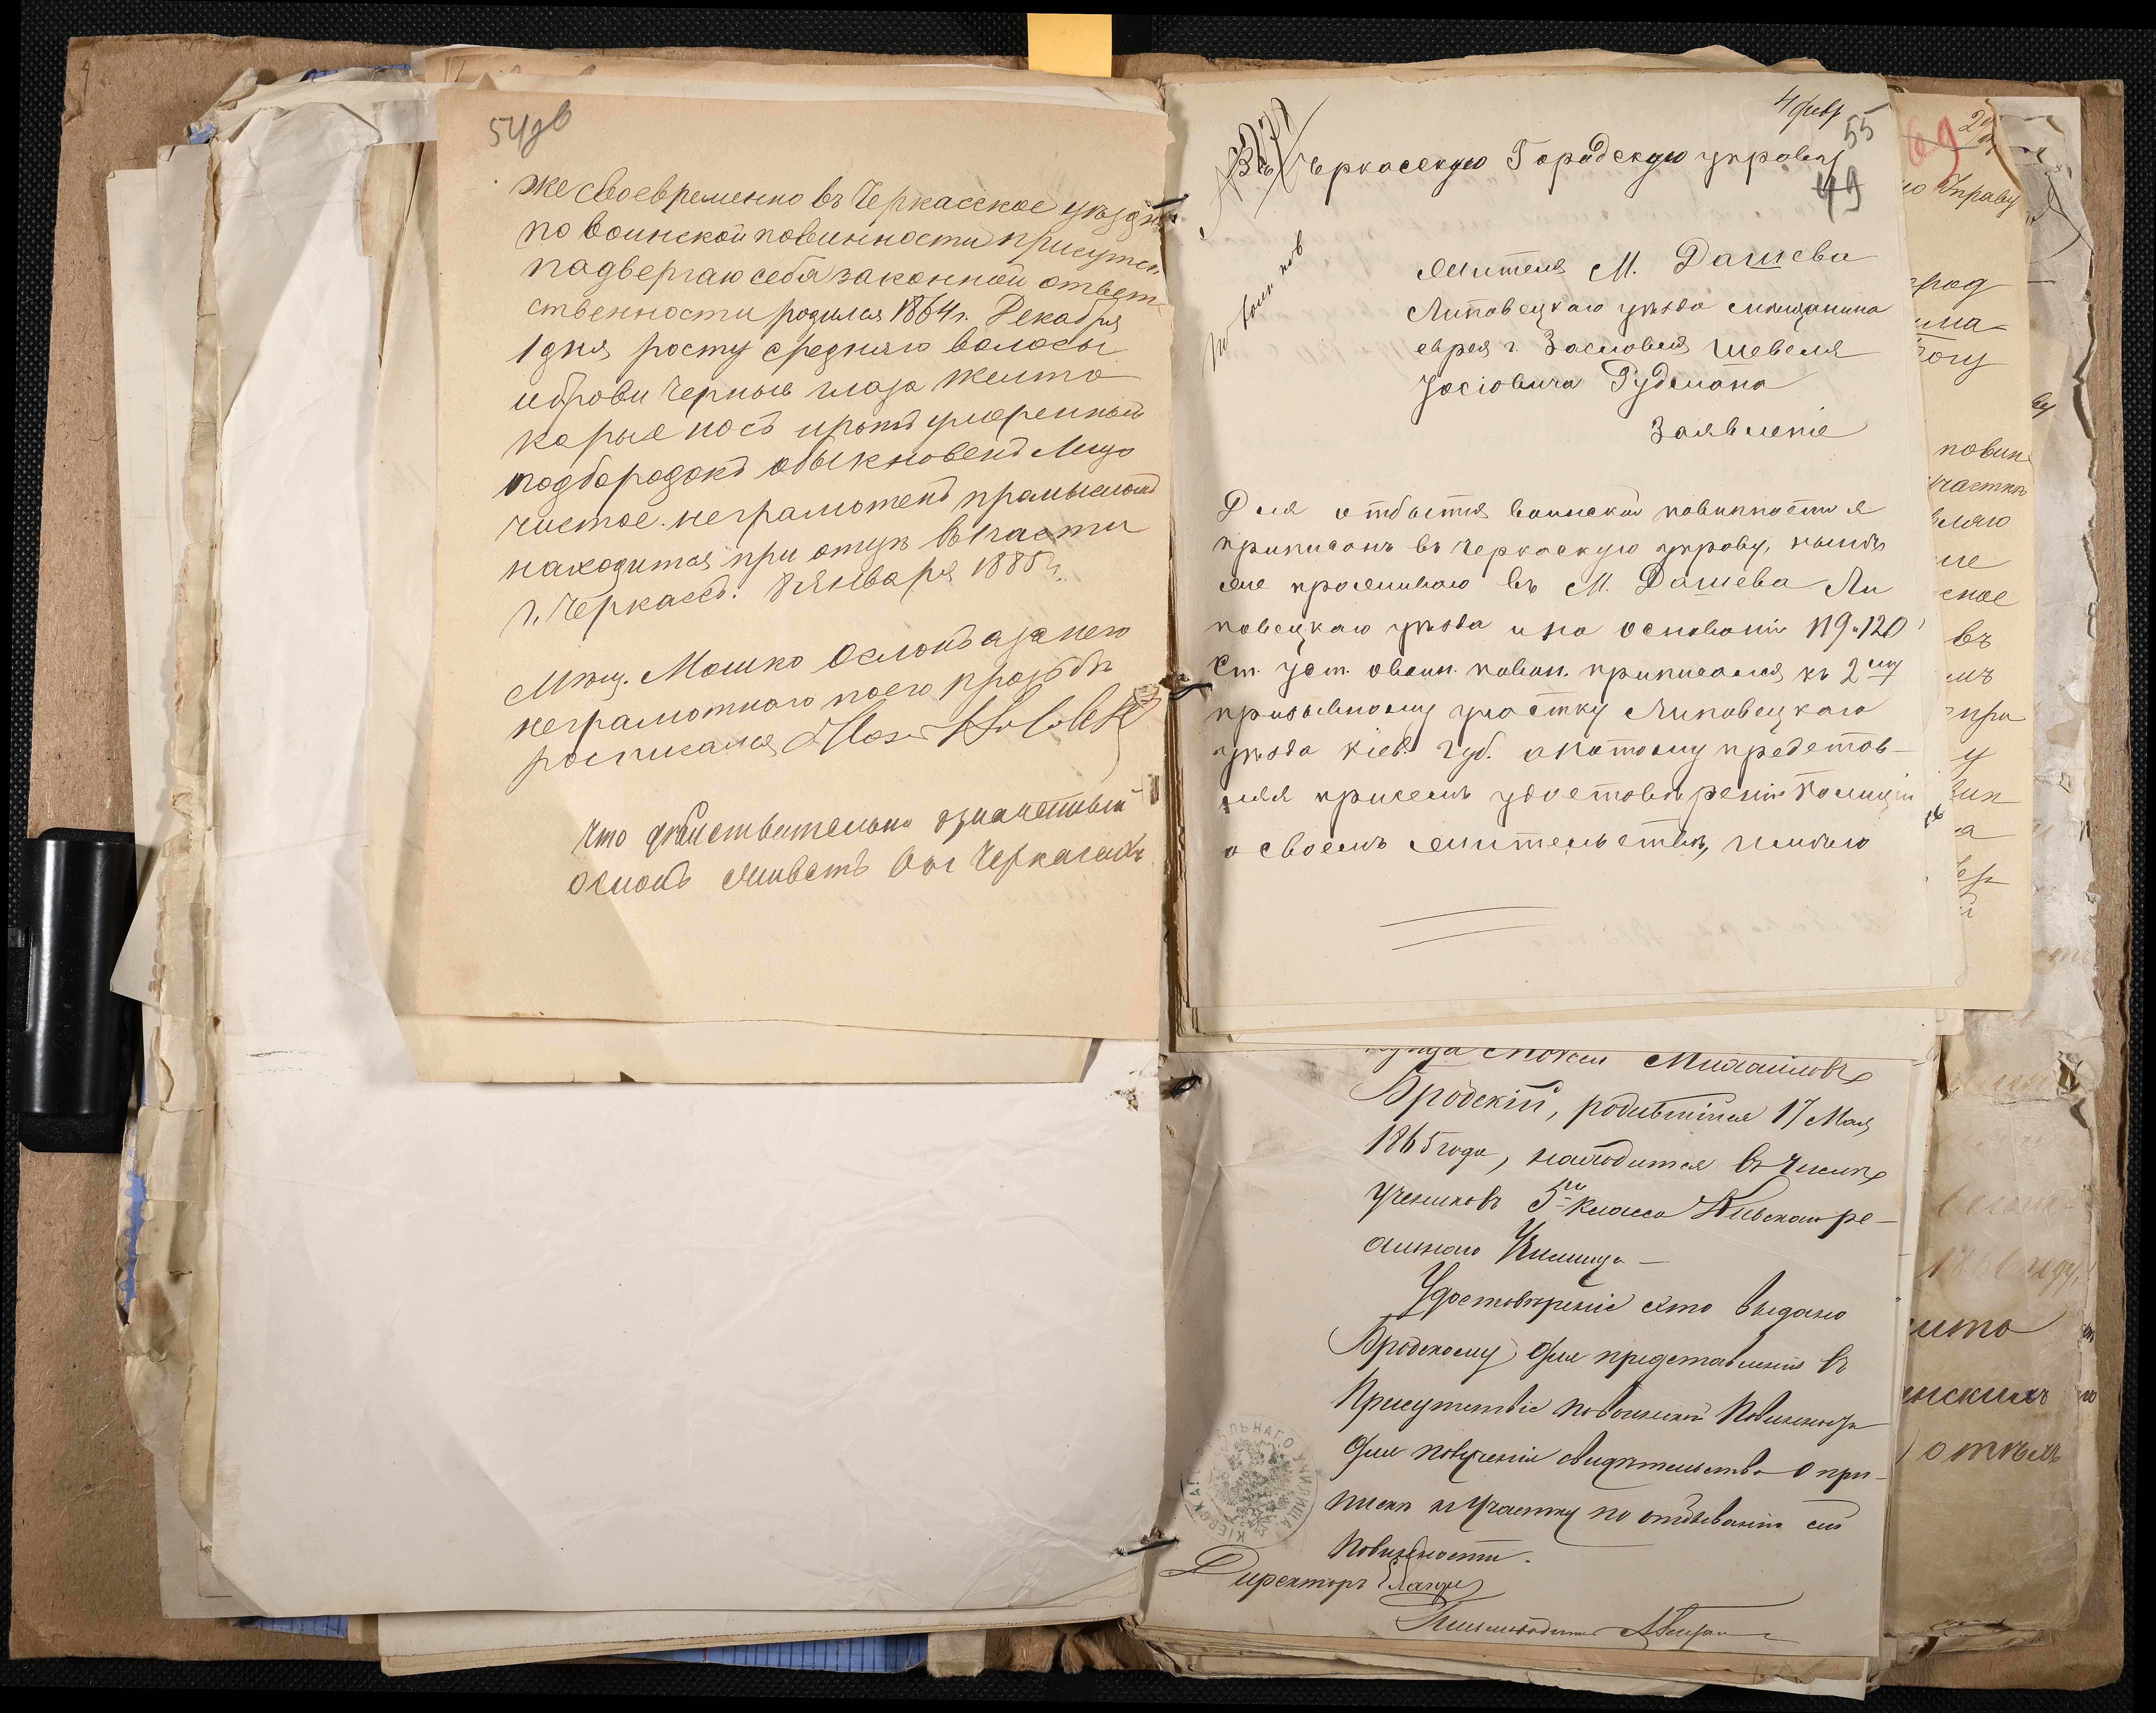 54об
же своевременно въ Черкасское уѣздн
по воинской повинности присутст
падвергаю себя законной ответ
ственности родился 1864 г. Декабря
1 дня росту средняго волосы
и брови черныя глаза желто
карые носъ и ротъ умеренный
подбородокъ обыкновенъ Лицо
чистое. неграмотенъ промысломъ
находится при отцѣ въ части
г. Черкассъ. 8 января 1885 г.
Мѣщ. Мошко Ослонъ а за него
неграмотного по его прозьбѣ
росписался
что дѣйствительно означенный
Ослонъ живетъ въ г Черкасахъ
4 февр
55
49
Въ Черкасскую Городскую управу
По воин пов
Жителя М. Дашева
Липовецкаго уѣзда мѣщанина
еврея г. Заславля Шевеля
Іосіовича Гудмана
Заявленіе
Для отбытія воинской повинности я
приписанъ въ Черкаскую управу, нынѣ
же проживаю въ М. Дашева Ли
повецкаго уѣзда и на основаніи 119 и 120
Ст. Уст. о воин. повин. приписался къ 2му
призывному участку Липовецкаго
уѣзда Кіев. губ. а потому представ-
ляя присемъ удостовѣреніе Полиціи
о своемъ жительствѣ, имѣю
Михаиловъ
Бродскій, родившійся 17 Мая
1865 года, находится въ числѣ
учениковъ 5го класса Кіевскаго ре-
альнаго Училища —
Удостовѣреніе это выдано
Бродскому для представленія въ
Присутствіе по воинской Повинности
для полученія свидѣтельства о при-
пискѣ къ участку по отбыванію сей
Повинности.
Директоръ
Письмоводитель
КІЕВСКАГО РЕАЛЬНАГО УЧИЛИЩА
69
Управу
повин
участку
въ